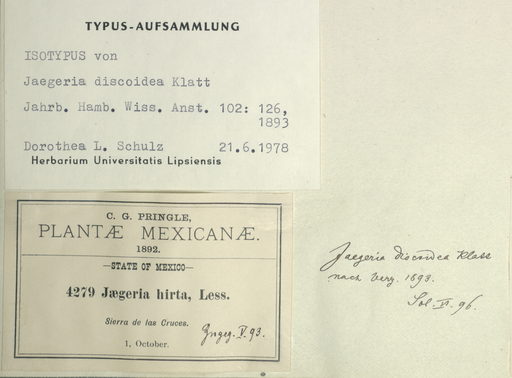 TYPUS-AUFSAMMLUNG
ISOTYPUS von
Jaegeria discoidea Klatt
Jahrb. Hamb. Wiss. Anst. 102: 126,
1893
Dorothea L. Schulz 21.6.1978
Herbarium Universitatis Lipsiensis
C. G. PRINGLE,
PLANTÆ MEXICANÆ.
1892.
—STATE OF MEXICO—
4279 Jægeria hirta, Less.
Sierra de las Cruces.
V. 93.
1, October.
Jaegeria discoidea Klatt
nach Verz. 1893.
VI. 96.